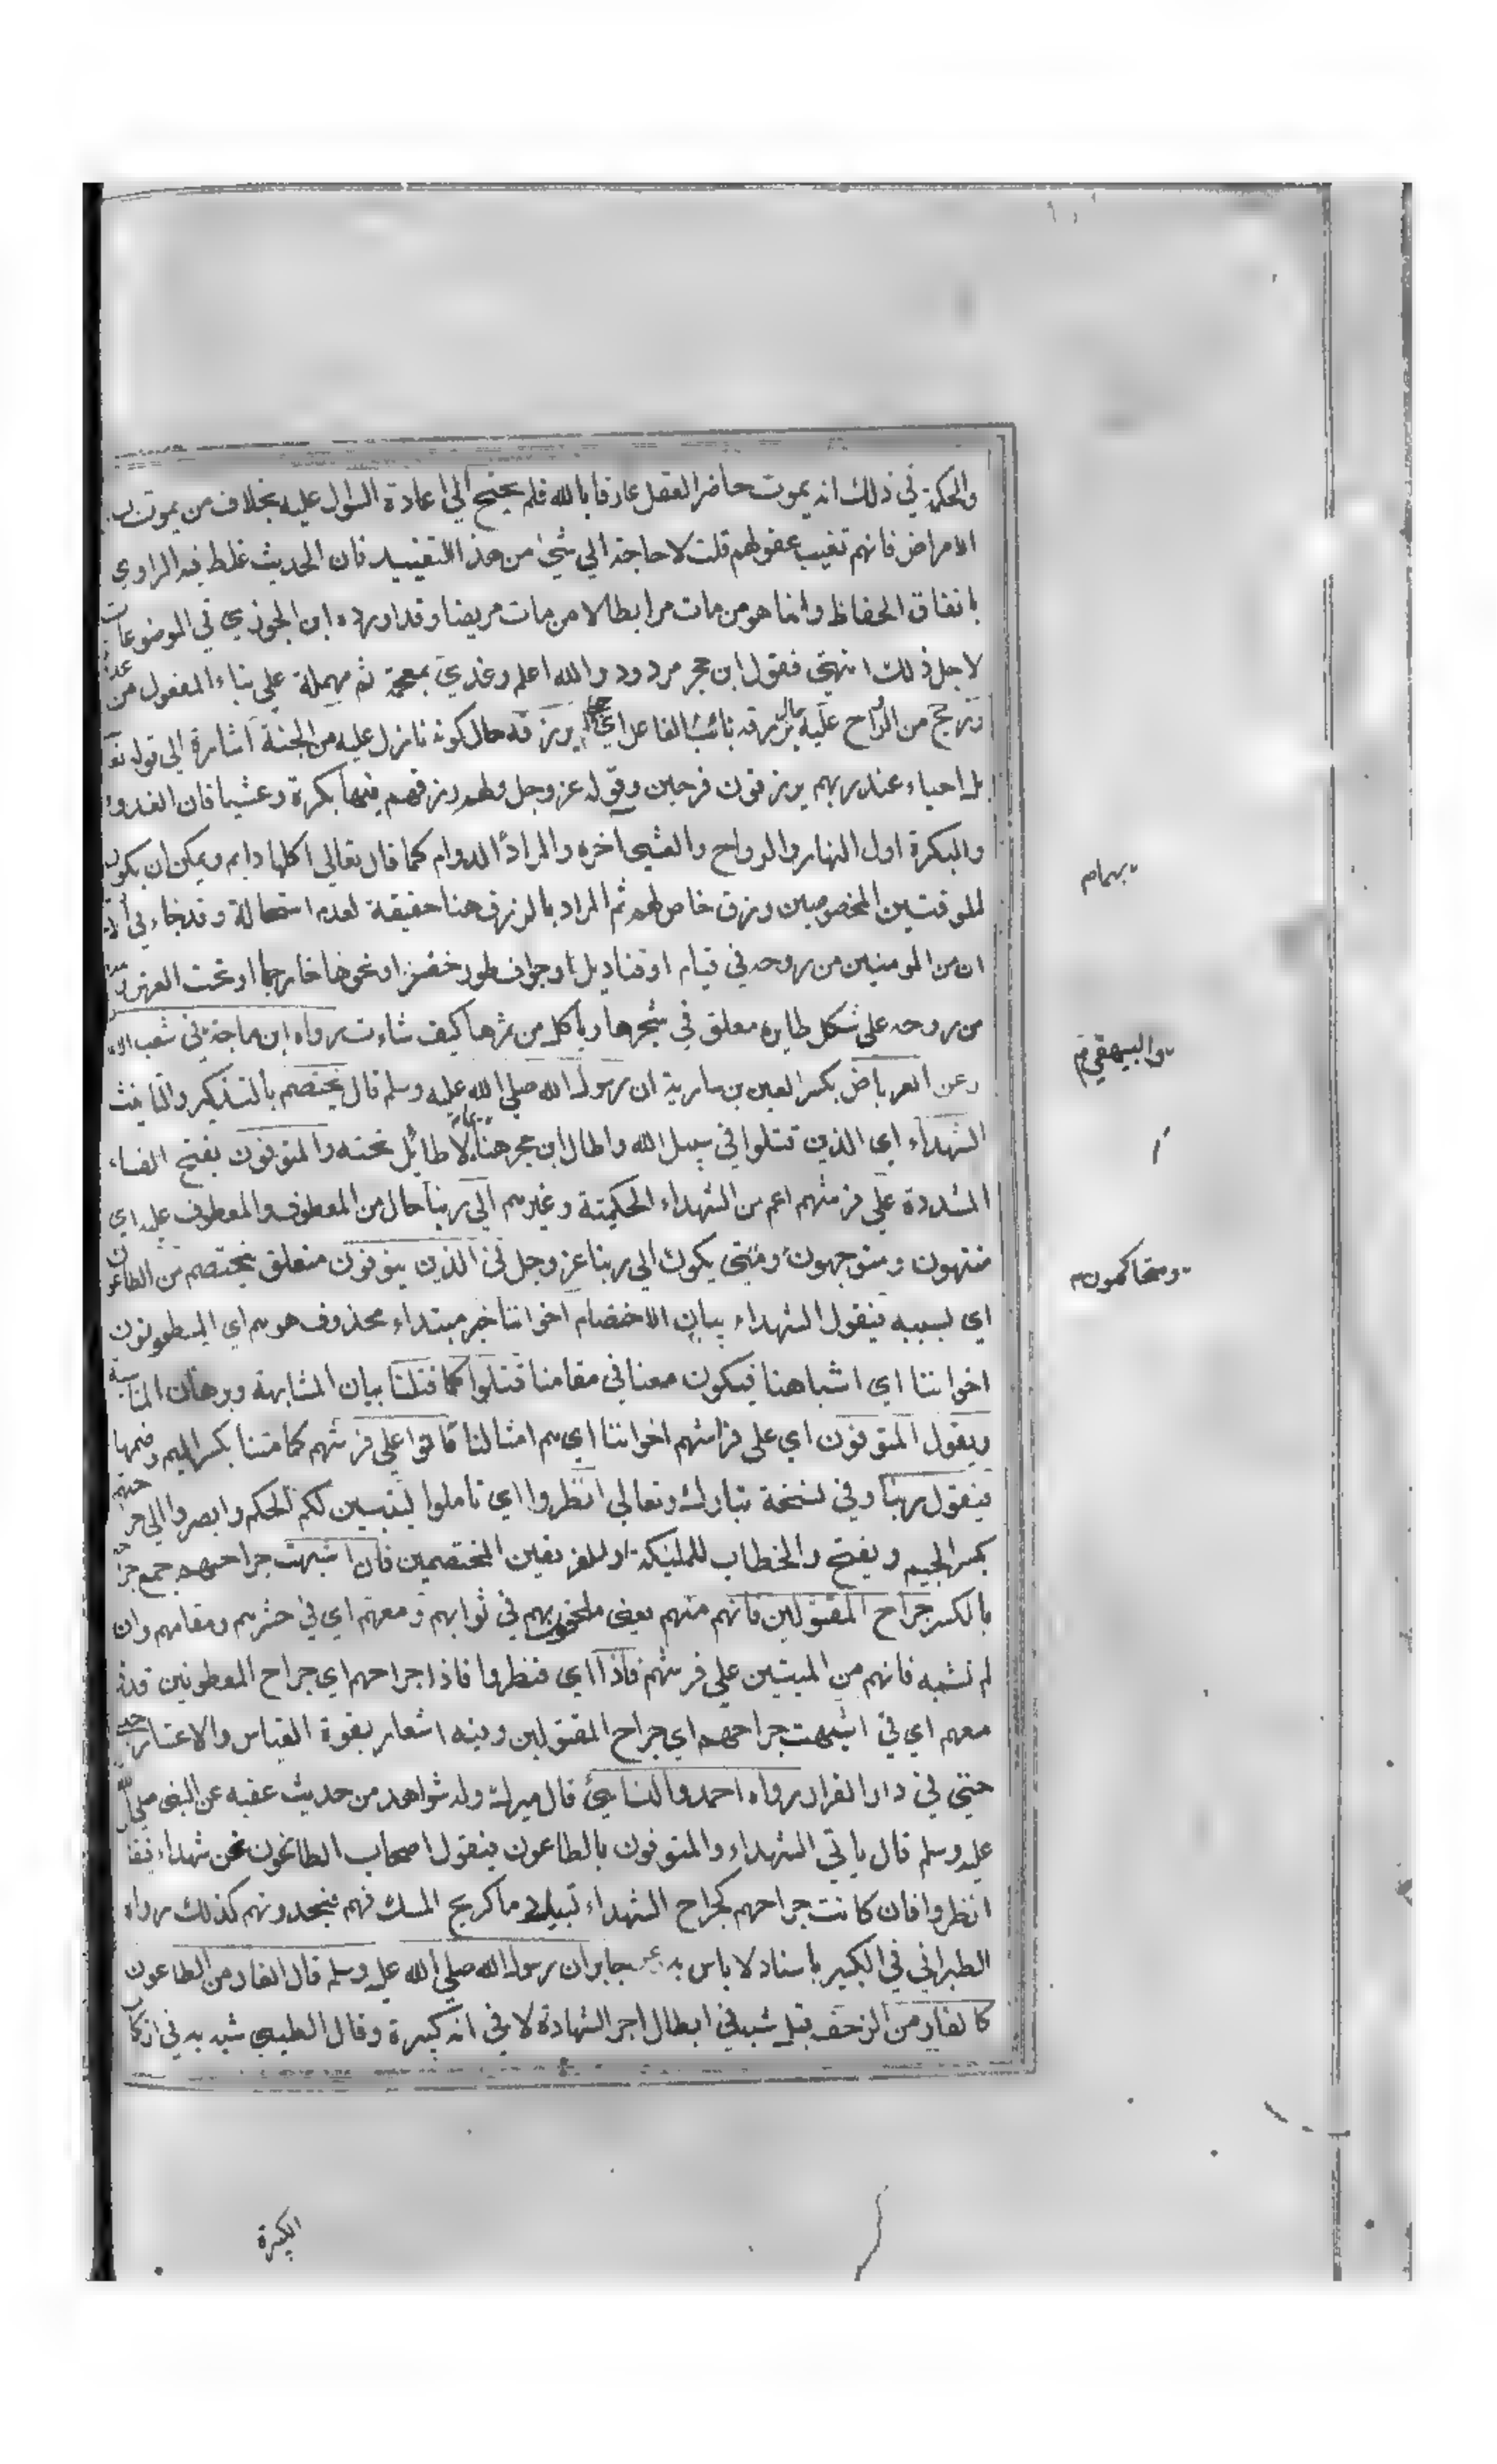 والحكمة في ذلك انه يموت حاضر العقل عارفا بالله فلم يحتج الي اعادة السوال عليه بخلاف من يموت
الامراض فانهم تغيب عقولهم قلت لا حاجة الي شيء من هذا التقييد فان الحديث غلط فيه الراوي
باتفاق الحفاظ وانما هو من مات مرابطا لا من مات مريضا وقد اورده ابن الجوزي في الموضوعات
لاجل ذلك انتهي فقول ابن حجر مردود والله اعلم وغدي بمعجمة ثم مهملة علي بناء المفعول من
وريح من الرواح عليه برزقه نائب الفاعل اي يرزقه حال كونه نازل عليه من الجنة اشارة الي قوله
بل احياء عند ربهم يرزقون فرحين وقوله عز وجل ولهم رزقهم فيها بكرة وعشيا فان الغدو
والبكرة اول النهار والرواح والعشي اخره والمراد الدوام كما قال تعالي اكلها دايم ويمكن ان يكون
للوقتين المخصوصين رزق خاص لهم ثم المراد بالرزق هنا حقيقة لعدم استحالة وقد جاء في
ان من المومنين من روحه في قيام او قناديل او جواف طور خضر او نحوها خارجها او تحت العرش
من روحه علي شكل طاير معلق في شجرها وياكل من ثمرها كيف شاءت رواه ابن ماجة في شعب
وعن العرباض بكسر العين بن سارية ان رسول الله صلي الله عليه وسلم قال يختصم بالتذكير والتانيث
الشهداء اي الذين قتلوا في سبيل الله واطال ابن حجر هنا لا طائل تحته والمتوفون بفتح الفاء
المشددة علي فرشهم اعم من الشهداء الحكمية وغيرهم الي ربنا حال من المعطوف والمعطوف عليه اي
منتهون ومتوجهون ومتي يكون الي ربنا عز وجل في الذين يتوفون متعلق بيختصم من الطاعون
اي بسببه فيقول الشهداء بيان الاختصام اخواننا خبر مبتداء محذوف هو هم اي المطعونون
اخواننا اي اشباهنا فيكون معنا في مقامنا قتلوا كما قتلنا بيان المشابهة وبرهان المناسبة
ويقول المتوفون اي علي فراشهم اخواننا اي هم امثالنا ماتوا علي فرشهم كما متنا بكسر الميم وضمها
فيقول ربنا وفي نسخة تبارك وتعالي انظروا اي تاملوا ليتبين لكم الحكم وابصروا الي جراحتهم
بكسر الجيم ويفتح والخطاب للمليكة او للفريقين المختصمين فان اشبهت جراحتهم جمع
بالكسر جراح المقتولين فانهم منهم يعني ملحقون بهم في ثوابهم ومعهم اي في حشرهم ومقامهم وان
لم تشبه فانهم من الميتين علي فرشهم فاذا اي فنظروا فاذا جراحهم اي جراح المطعونين قد
معهم اي في اشبهت جراحهم اي جراح المقتولين وفيه اشعار بقوة القياس والاعتبار
حتي في دار القرار رواه احمد والنسايئ قال ميرك وله شواهد من حديث عقبه عن النبي صلي الله
عليه وسلم قال ياتي الشهداء والمتوفون بالطاعون فيقول اصحاب الطاعون نحن شهداء
انظروا فان كانت جراحهم كجراح الشهداء تسيل دما كريح المسك فهم فيجدونهم كذلك رواه
الطبراني في الكبير باسناد لا باس به عن جابر ان رسول الله صلي الله عليه وسلم قال الفار من الطاعون
كالفار من الزحف قيل شبه في ابطال اجر الشهادة لا في انه كبيرة وقال الطيبي شبه به في ارتكاب
بهمام
والبيهقي م
ومتحاكمون م
الكبيرة